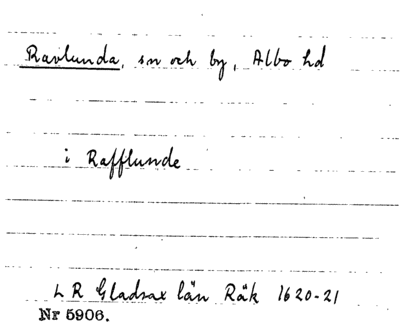 Ravlunda, sn och by, Albo hd
i Rafflunde
LR Gladsax län Räk 1620-21
Nr 5906.